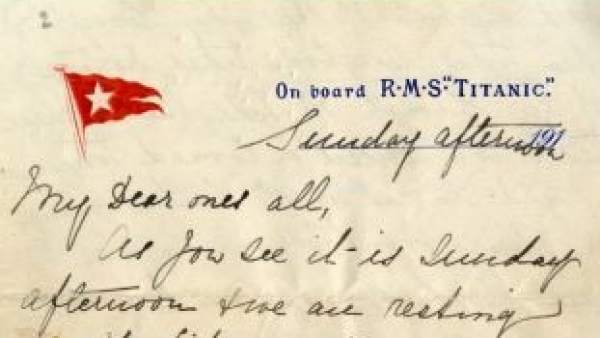 2
On board R·M·S·"TITANIC."
Sunday afternoon 191
My Dear ones all,
As you see it is Sunday
afternoon & we are resting